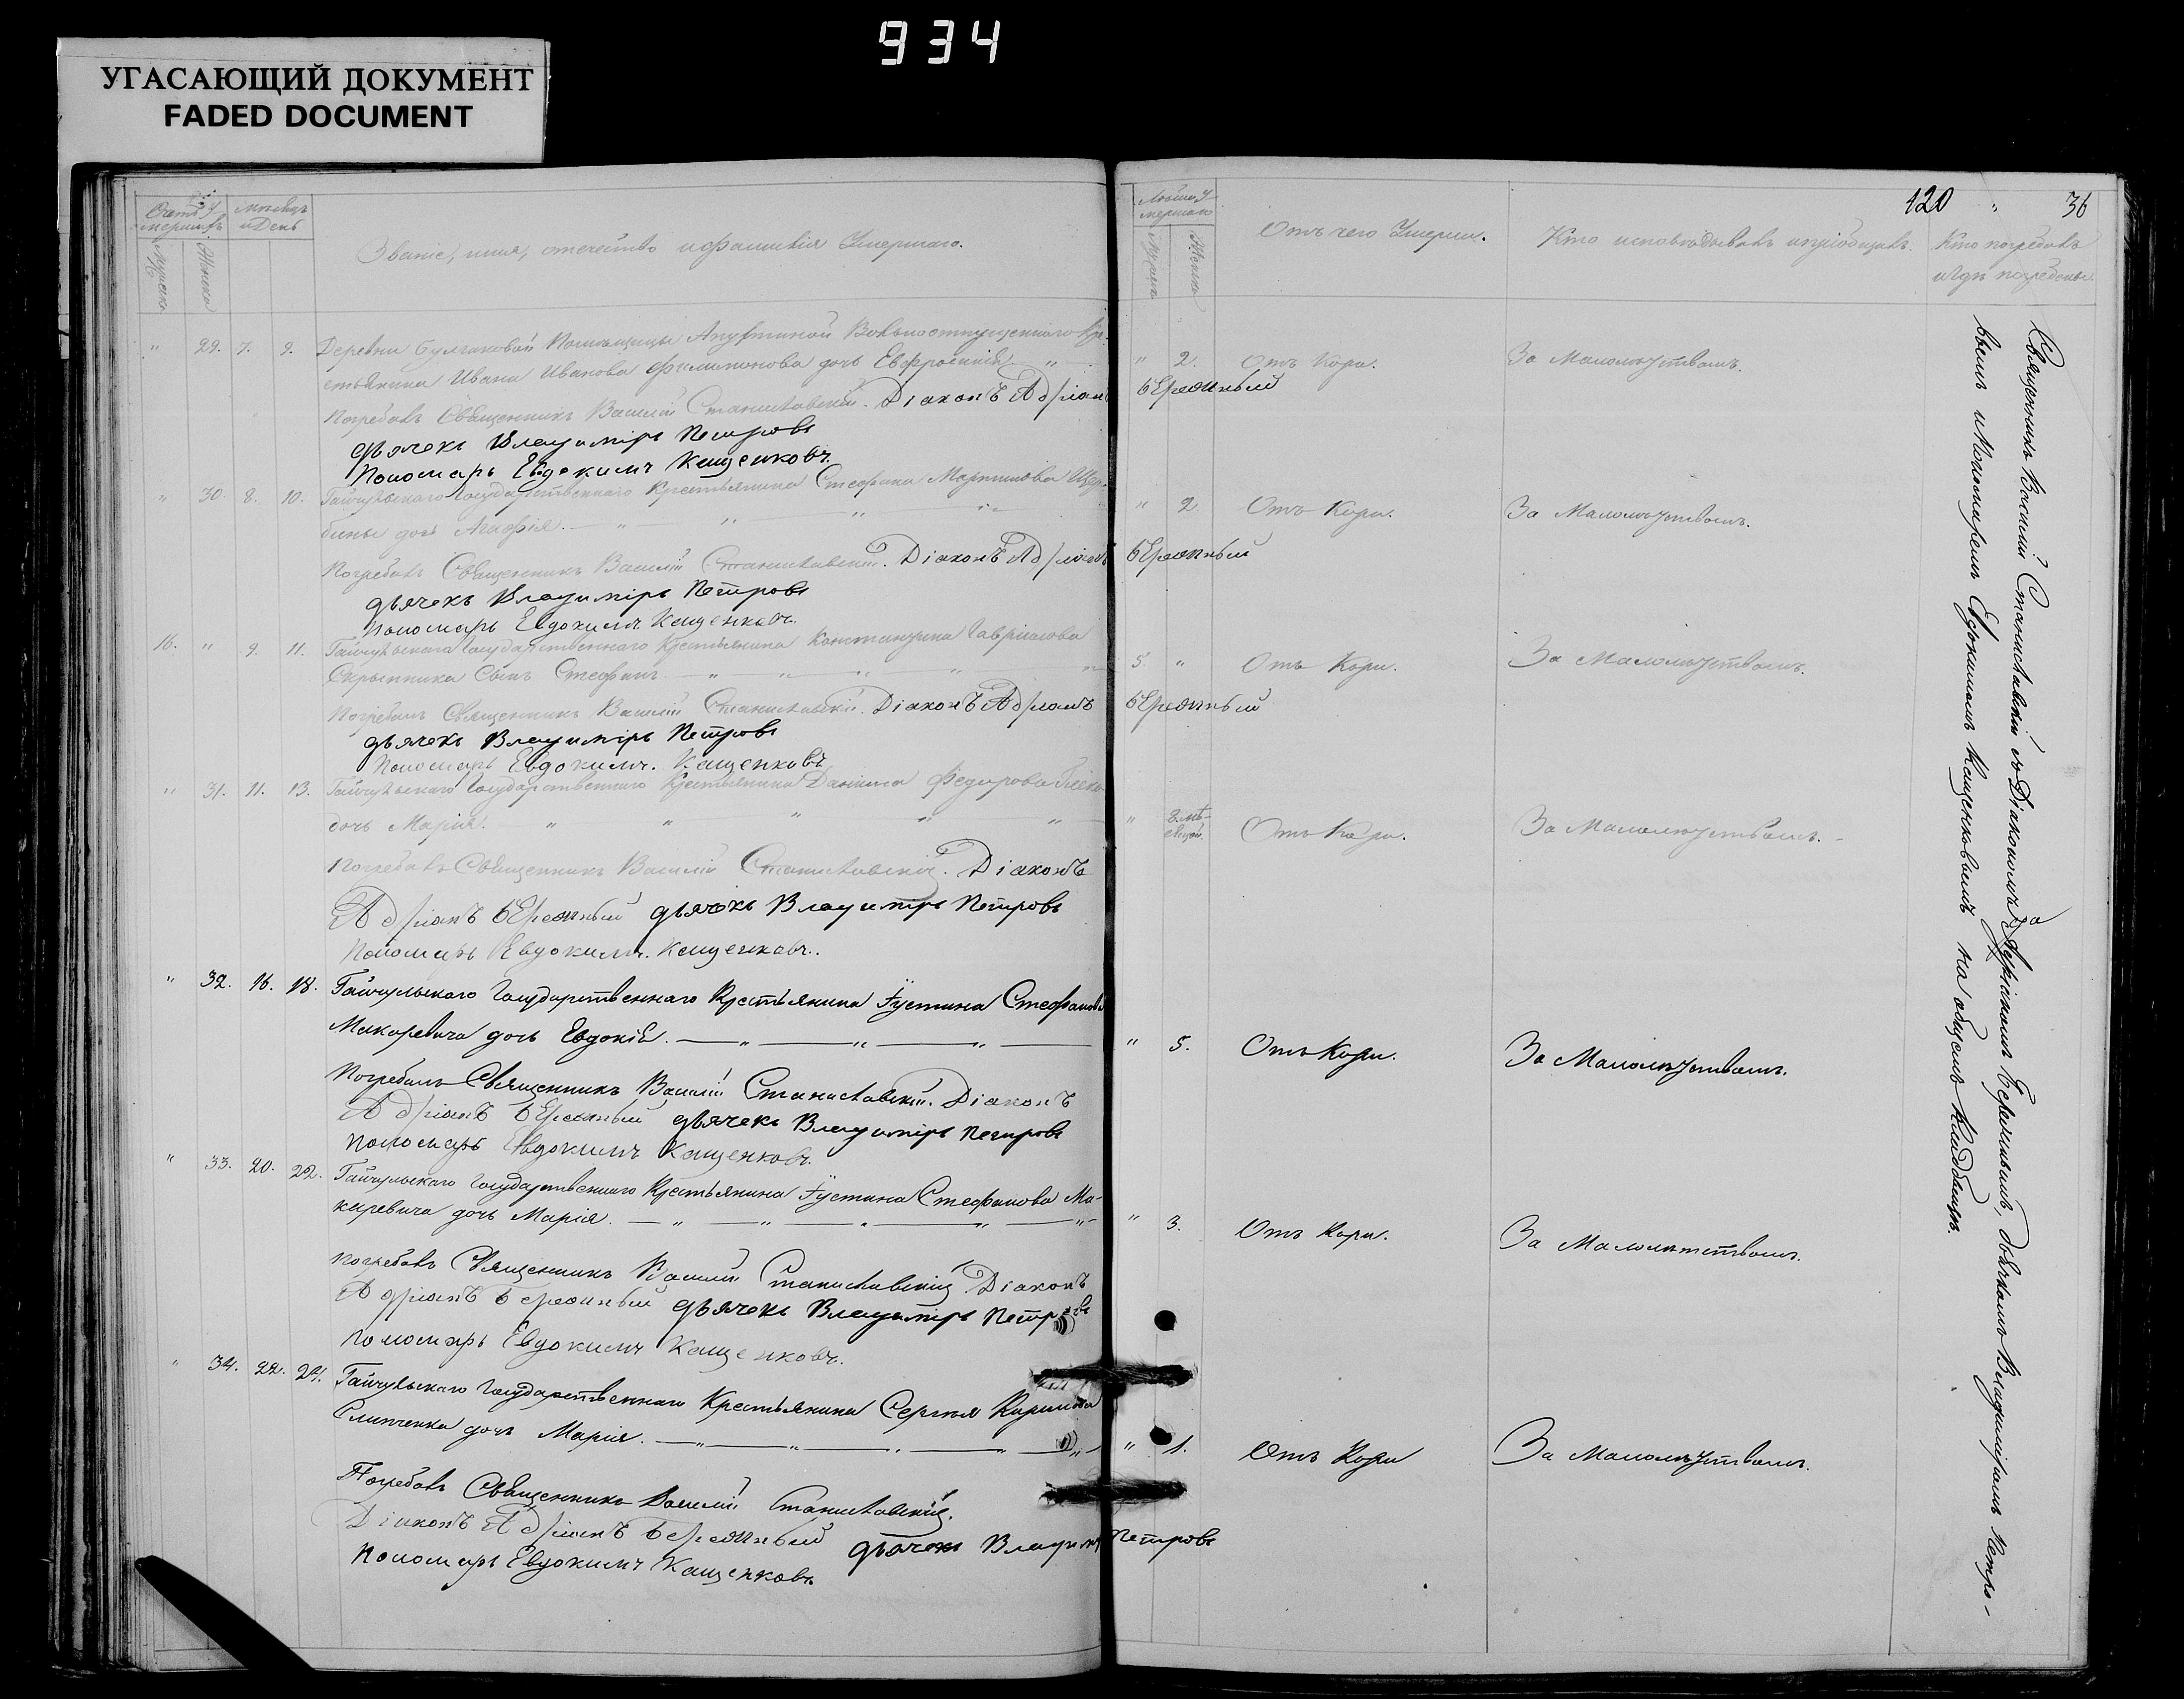 934
УГАСАЮЩИЙ ДОКУМЕНТ
FADED DOCUMENT
Счетъ умершихъ
Мѣсяцъ и День
Званіе, имя, отечество и фамилія Умершаго.
Мужеска
Женска
Лѣта Умершаго
Мужеска
Женска
Отъ чего Умерли.
Кто исповѣдывалъ и пріобщалъ.
Кто погребалъ и гдѣ погребены.
120 " 36
" 29. 7. 9. Деревни Булгаковой Помѣщицы Вольноотпущеннаго Кре-
стьянина Ивана Иванова Филимонова дочь Евфросинія " " 2. Отъ Кори. За Малолѣтствомъ.
Погребалъ Священникъ Василій Станиславскій. Діаконъ Адріанъ Бережный
дьячекъ Владиміръ Петровъ
Пономарь Евдокимъ Кащенковъ.
" 30. 8. 10. Гайчульскаго Государственнаго Крестьянина Стефана Мартинова
бины дочь Агафія. " " " " " 2. Отъ Кори. За Малолѣтствомъ.
Погребалъ Священникъ Василій Станиславскій. Діаконъ Адріанъ Бережный
дьячекъ Владиміръ Петровъ
Пономарь Евдокимъ Кащенковъ.
16. " 9. 11. Гайчульскаго Государственнаго Крестьянина Константина Гавриилова
Скрыпника Сынъ Стефанъ. " " " " " 5. " Отъ Кори. За Малолѣтствомъ.
Погребалъ Священникъ Василій Станиславскій. Діаконъ Адріанъ Бережный
дьячекъ Владиміръ Петровъ
Пономарь Евдокимъ. Кащенковъ
" 31. 11. 13. Гайчульскаго Государственнаго Крестьянина Даніила Федорова
дочь Марія. " " " " " " 8. мѣ-
сяцей. Отъ Кори. За Малолѣтствомъ.
Погребалъ Священникъ Василій Станиславскій. Діаконъ
Адріанъ Бережный дьячекъ Владиміръ Петровъ
Пономарь Евдокимъ. Кащенковъ.
" 32. 16. 18. Гайчульскаго Государственнаго Крестьянина Іустина Стефанова
Макаревича дочь Евдокія. " " " " 5. Отъ Кори. За Малолѣтствомъ.
Погребалъ Священникъ Василій Станиславскій. Діаконъ
Адріанъ Бережный дьячекъ Владиміръ Петровъ
Пономарь Евдокимъ Кащенковъ.
" 33. 20. 22. Гайчульскаго Государственнаго Крестьянина Іустина Стефанова Ма-
каревича дочь Марія. " " " " " " 3. Отъ Кори. За Малолѣтствомъ.
Погребалъ Священникъ Василій Станиславскій Діаконъ
Адріанъ Бережный дьячекъ Владиміръ Петровъ
Пономарь Евдокимъ Кащенковъ.
" 34. 22. 24. Гайчульскаго Государственнаго Крестьянина Сергѣя Кирилова
дочь Марія. " " " " " " 1. Отъ Кори За Малолѣтствомъ.
Погребалъ Священникъ Василій Станиславскій.
Діаконъ Адріанъ Бережный дьячекъ Владиміръ Петровъ
Пономарь Евдокимъ Кащенковъ
Священникъ Василій Станиславскій съ Діакономъ Адріаномъ Бережнымъ, дьячкомъ Владиміромъ Петро-
вымъ и Пономаремъ Евдокимомъ Кащенковымъ на общемъ кладбищѣ.